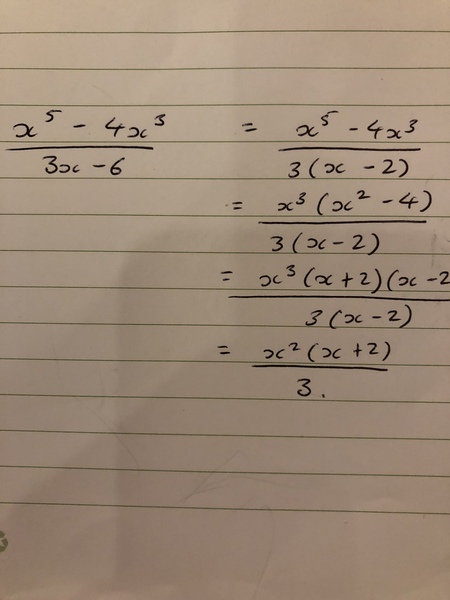 x⁵ - 4x³ / 3x - 6 = x⁵ - 4x³ / 3(x - 2)
= x³(x² - 4) / 3(x - 2)
= x³(x + 2)(x - 2 / 3(x - 2)
= x²(x + 2) / 3.